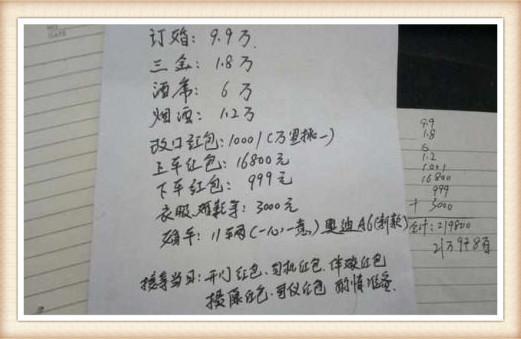 订婚: 9.9万
三金: 1.8万
酒席: 6万
烟酒: 1.2万
改口红包: 10001(万里挑一)
上车红包: 16800元
下车红包: 999元
衣服、等: 3000元
婚车: 11车辆(一心一意) 奥迪A6(新款)
接等当日: 开门红包、司机红包、伴娘红包
红包、司仪红包 酌情准备
9.9
1.8
6
1.2
16800
999
+ 3000
合计: 219800
21万9千8百